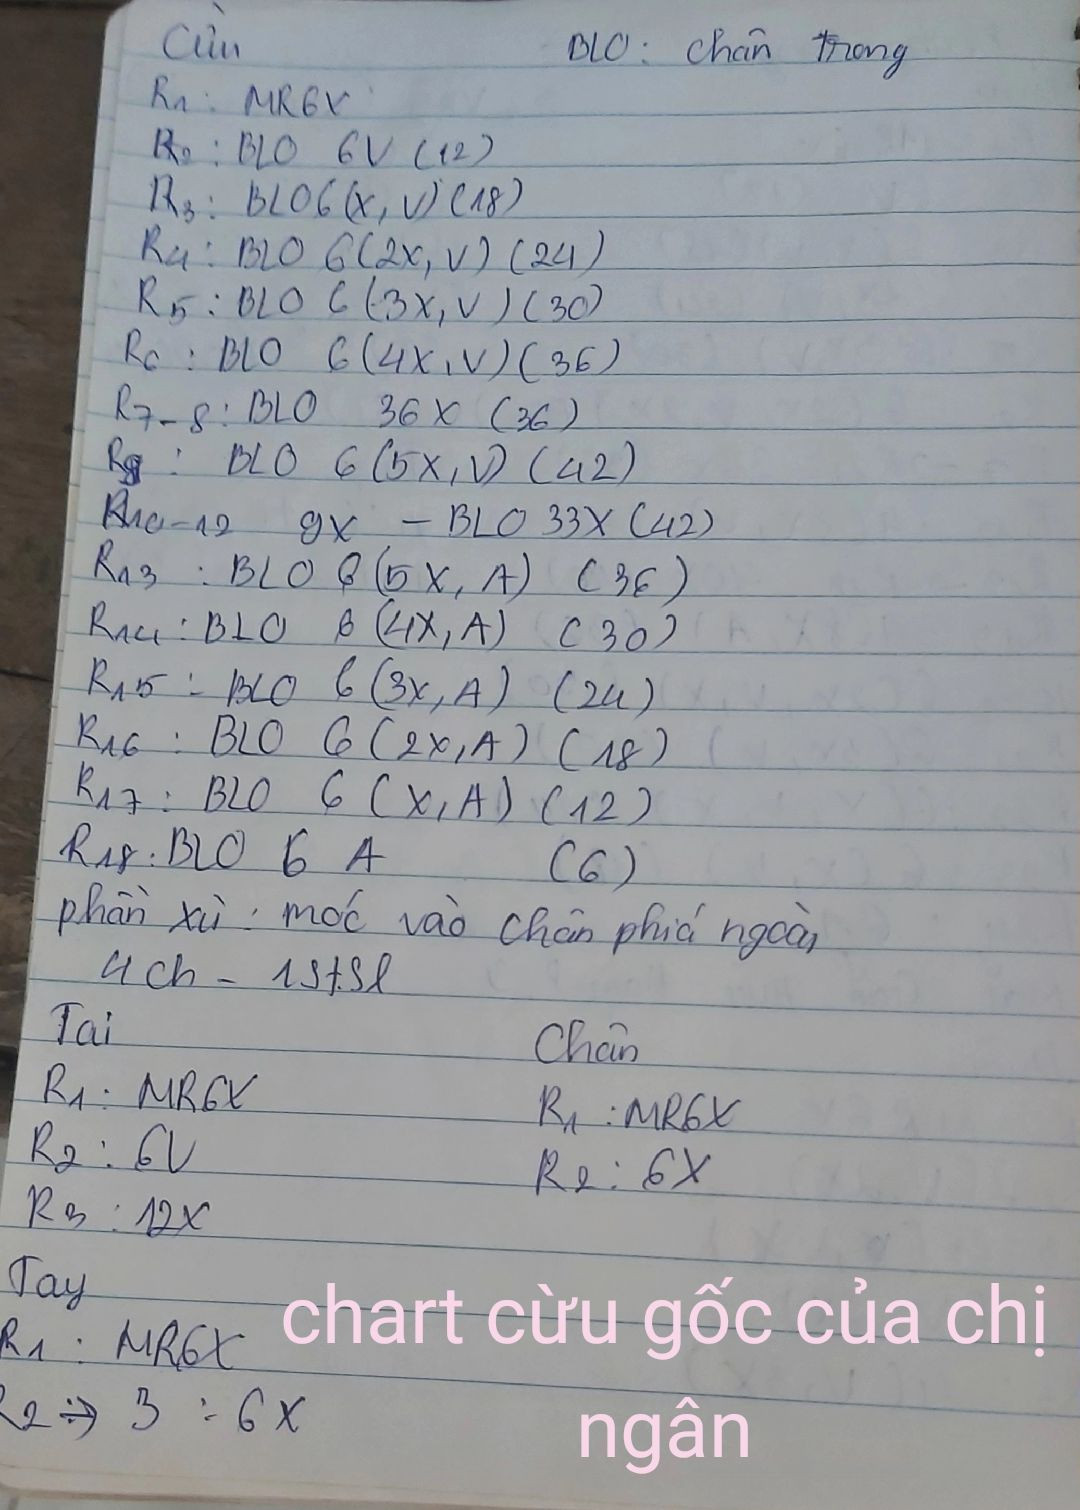 Cừu
BLO: chân trong
R1: MR6X
R2: BLO 6V (12)
R3: BLO 6(X, V) (18)
R4: BLO 6(2X, V) (24)
R5: BLO 6(3X, V) (30)
R6: BLO 6(4X, V) (36)
R7-8: BLO 36X (36)
R9: BLO 6(5X, V) (42)
R10-12 9X - BLO 33X (42)
R13: BLO 6(5X, A) (36)
R14: BLO 6(4X, A) (30)
R15: BLO 6(3X, A) (24)
R16: BLO 6(2X, A) (18)
R17: BLO 6(X, A) (12)
R18: BLO 6 A (6)
phần xù: móc vào chân phía ngoài
4ch - 1st.sl
Tai
R1: MR6X
R2: 6V
R3: 12X
Chân
R1: MR6X
R2: 6X
Tay
R1: MR6X
R2 ÷> 3: 6X
chart cừu gốc của chị
ngân